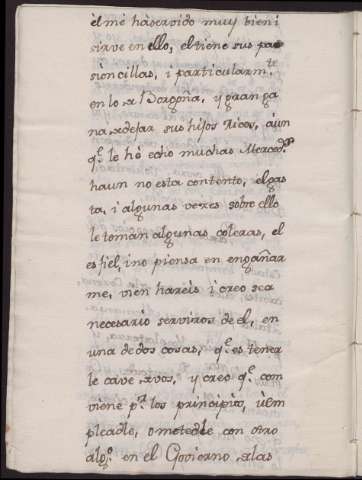 èl me há servido muy bien i
sirve en ello, el tiene sus pa
sioncillas, i particularm.te
en lo de Borgoña, y gran ga
na de dejar sus hijos Ricos, áun
q.e le hè echo muchas Merced.s
haun no esta contento, el gas
ta, i algunas vezes sobre ello
le toman algunas coleras, el
es fiel, i no piensa en engañar
me, vien hareis i creo sera
necesario serviros de él, en
una de dos cosas, q.e es tener
le cave de vos, y creo q.e com
viene p.a los principios, ú em
pleadle, o metedle con otro
alg.o en el Govierno de las